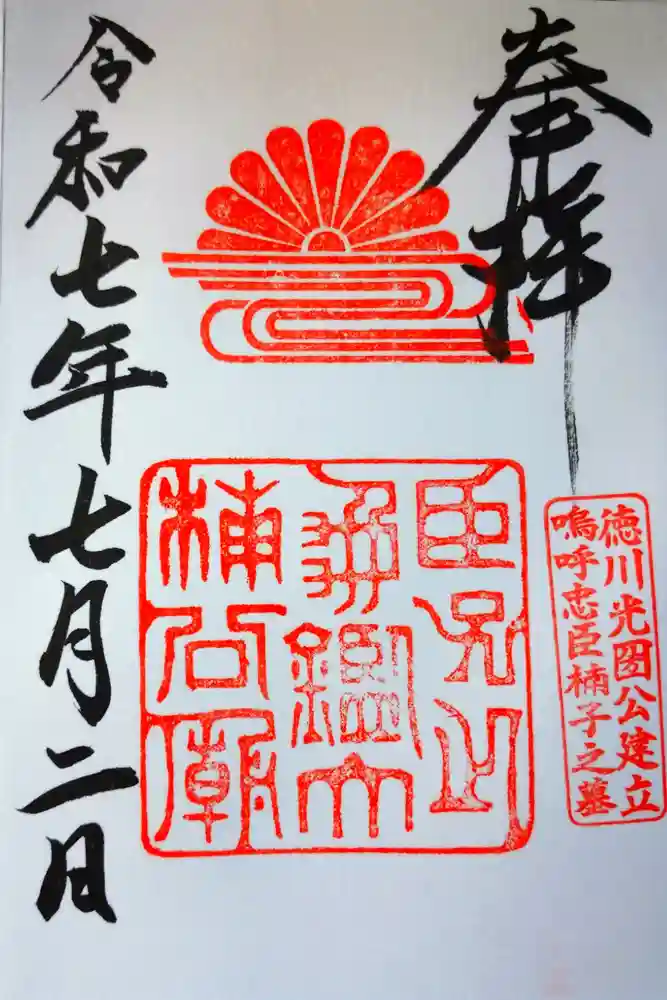 奉拝
徳川光圀公建立
嗚呼忠臣楠子之墓
楠公廟
令和七年七月二日